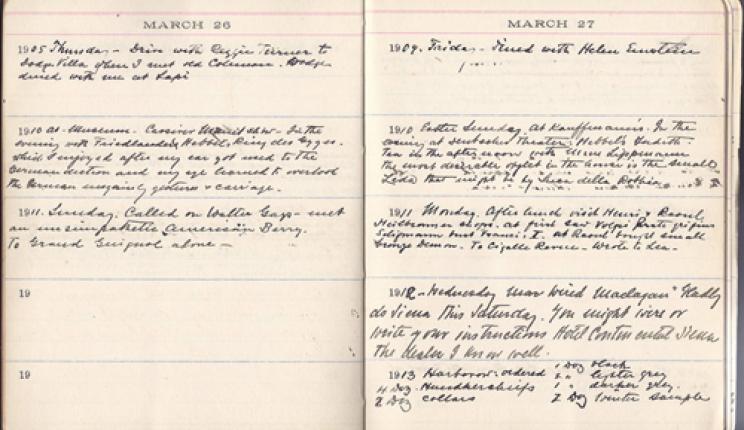 MARCH 26
1905 Thursday - Drive with Reggie Turner to
Dodge Villa where I met old Coleman. Dodge
dined with me at Lapi
1910 at Museum. Cassirer show - In the
evening with Friedlander Hebbel's Ring des Gyges.
which I enjoyed after my ear got used to the
German diction and my eye learned to overlook
the German ungainly gestures & carriage.
1911. Sunday. Called on Walter Gays - met
an unsimpatico American Berry.
To Grand Guignol alone -
19
19
MARCH 27
1909. Friday - Dined with Helen
1910 Easter Sunday. At Kauffmann's. In the
evening at Deutsches Theater: Hebbel's Judith.
Tea in the afternoon with Lippmann
the most desirable object in the house is the small
Leda that might be by della Robbia
1911 Monday. After lunch visit Henri & Raoul
Heilbronner shops. at first saw Volpi
Seligmann bust Francis I. At Raoul bought small
bronze Demon. To Cigalle Revue - Wrote to Lea -
1912 - Wednesday Wired Maclagan "Gladly
do Siena this Saturday. You might wire or
write your instructions Hotel Continental Siena
the dealer I know well.
1913 Harborow: ordered 1 Doz black
4 Doz Handkerchiefs " lighter grey
2 Doz collars 1 " darker grey.
2 Doz Winter sample